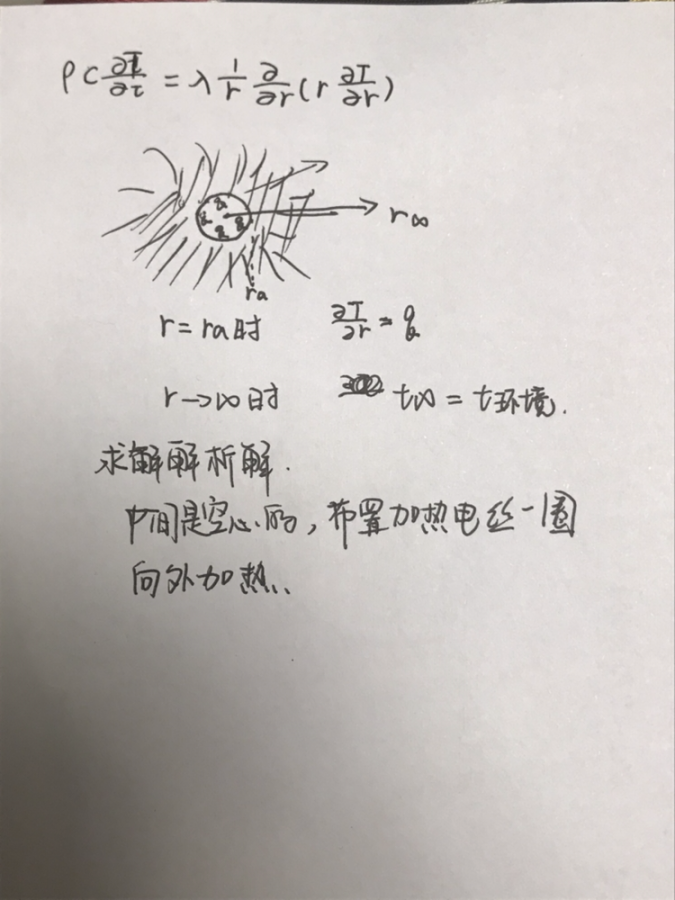 ρC ∂T/∂τ = λ 1/r ∂/∂r (r ∂T/∂r)
r∞
ra
r = ra时 ∂T/∂r = q
r→∞时 t∞ = t环境.
求解解析解.
中间是空心的,布置加热电丝一圈
向外加热.